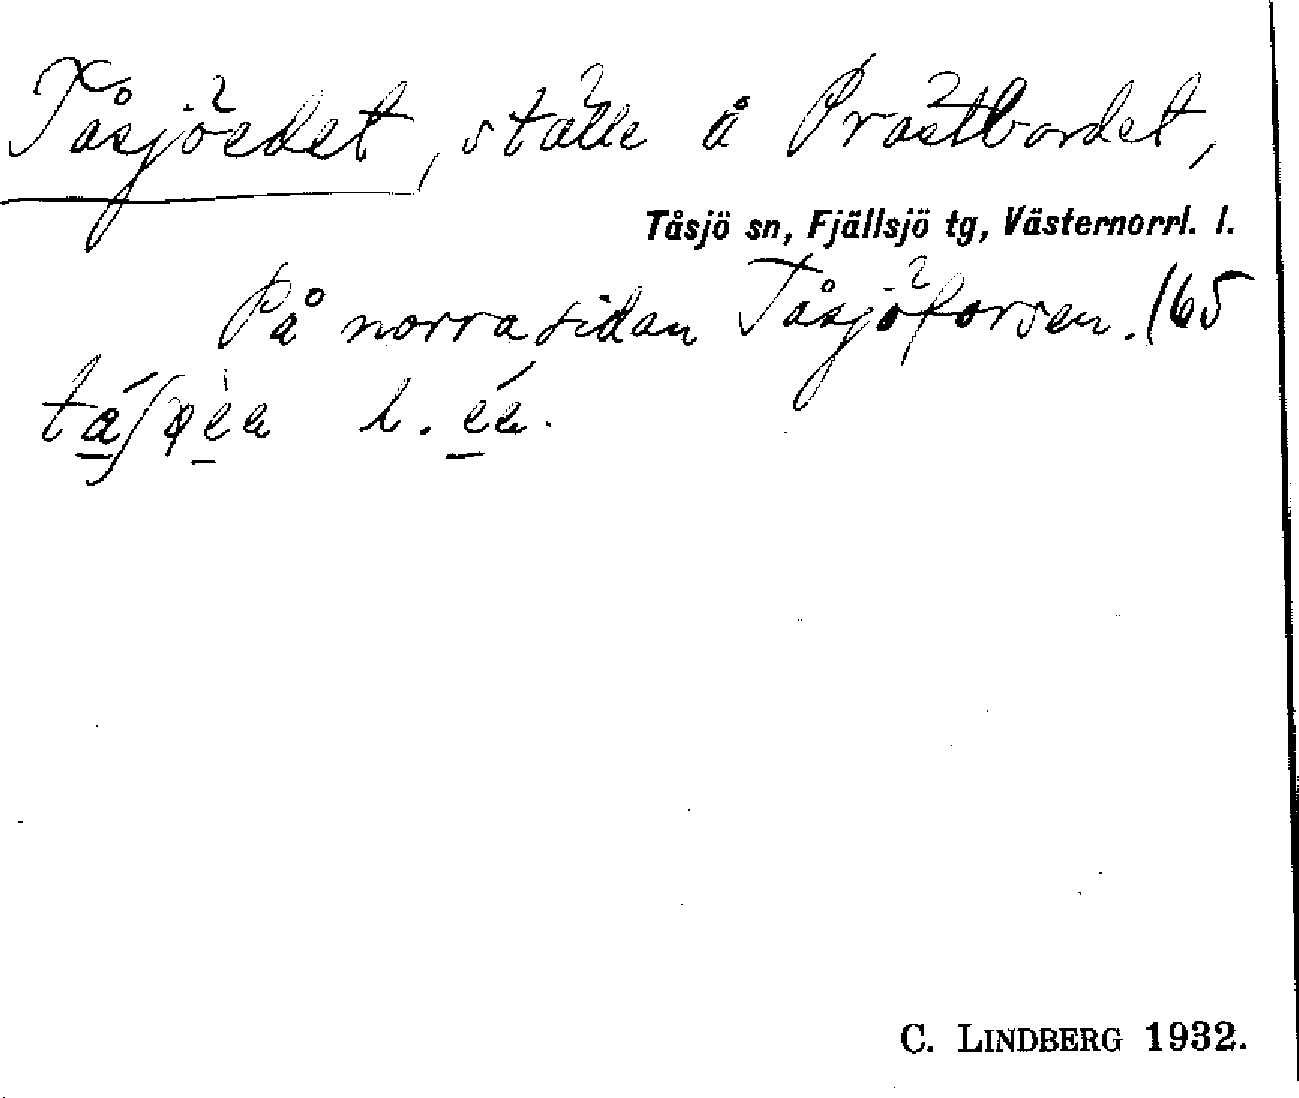 Tåsjöedet, ställe å Prästbordet,
Tåsjö sn, Fjällsjö tg, Västernorrl. l.
På norra sidan Tåsjöforsen. /65
l. ée.
C. LINDBERG 1932.